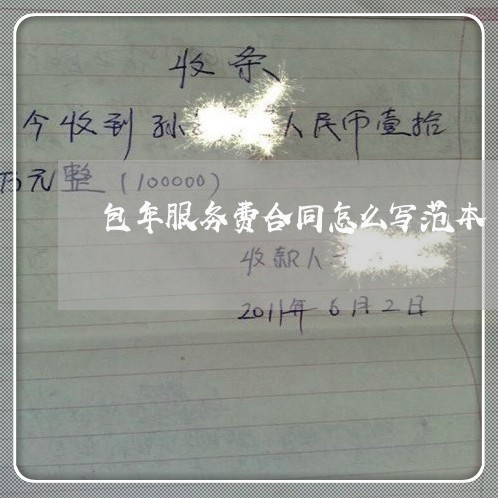 收条
今收到孙 人民币壹拾
万元整（100000）
包年服务费合同怎么写范本
收款人
2011年6月2日